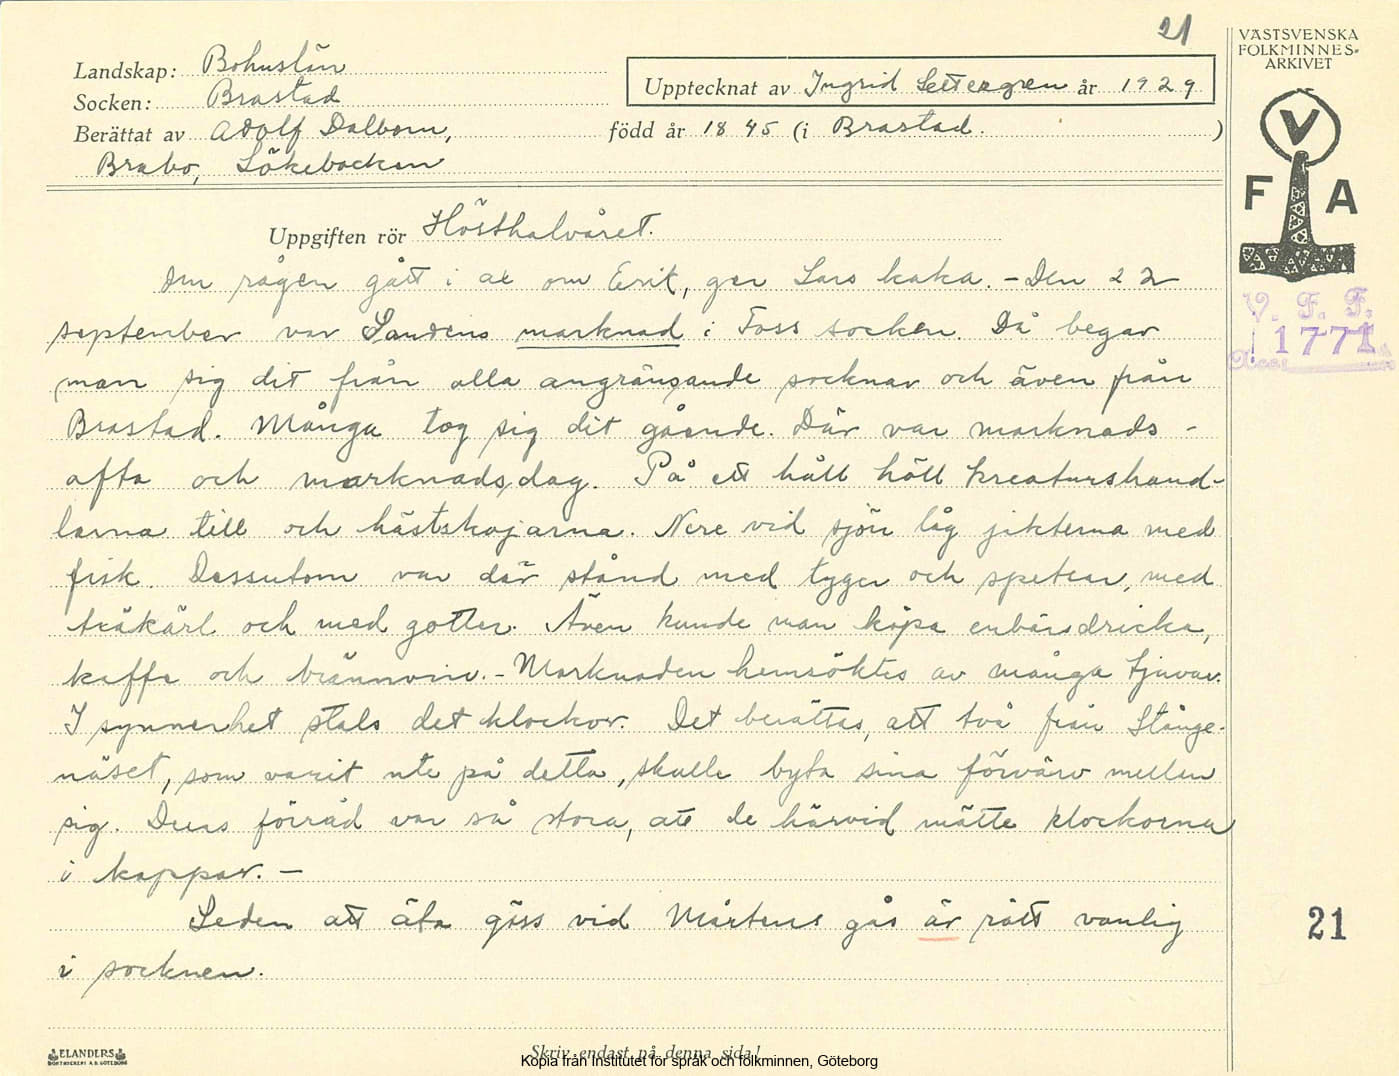 21
VÄSTSVENSKA
FOLKMINNES-
ARKIVET
Landskap: Bohuslän
Socken: Brastad
Upptecknat av Ingrid Settergren år 1929
Berättat av Adolf Dalbom, född år 1845 (i Brastad.)
Brabo, Lökebacken
V
F A
V. F. F.
1771
Uppgiften rör Hösthalvåret.
Om rågen gått i ax om Erik, ger Lars kaka. - Den 22
september var Sandens marknad i Foss socken. Då begav
man sig dit från alla angränsande socknar och även från
Brastad. Många tog sig dit gående. Där var marknads-
afta och marknadsdag. På ett håll höll kreaturshand-
larna till och hästskojarna. Nere vid sjön låg jakterna med
fisk. Dessutom var där stånd med tyger och spetsar, med
träkärl och med gotter. Även kunde man köpa enbärsdricka,
kaffe och brännvin. - Marknaden hemsöktes av många tjuvar.
I synnerhet stals det klockor. Det berättas, att två från Stånge-
näset, som varit ute på detta, skulle byta sina förvärv mellan
sig. Deras förråd var så stora, att de härvid mätte klockorna
i kappar. -
Seden att äta gåss vid Mårtens gås är rätt vanlig
i socknen.
21
ELANDERS
BOKTRYCKERI A.B. GÖTEBORG
Skriv endast på denna sida!
Kopia från Institutet för språk och folkminnen, Göteborg